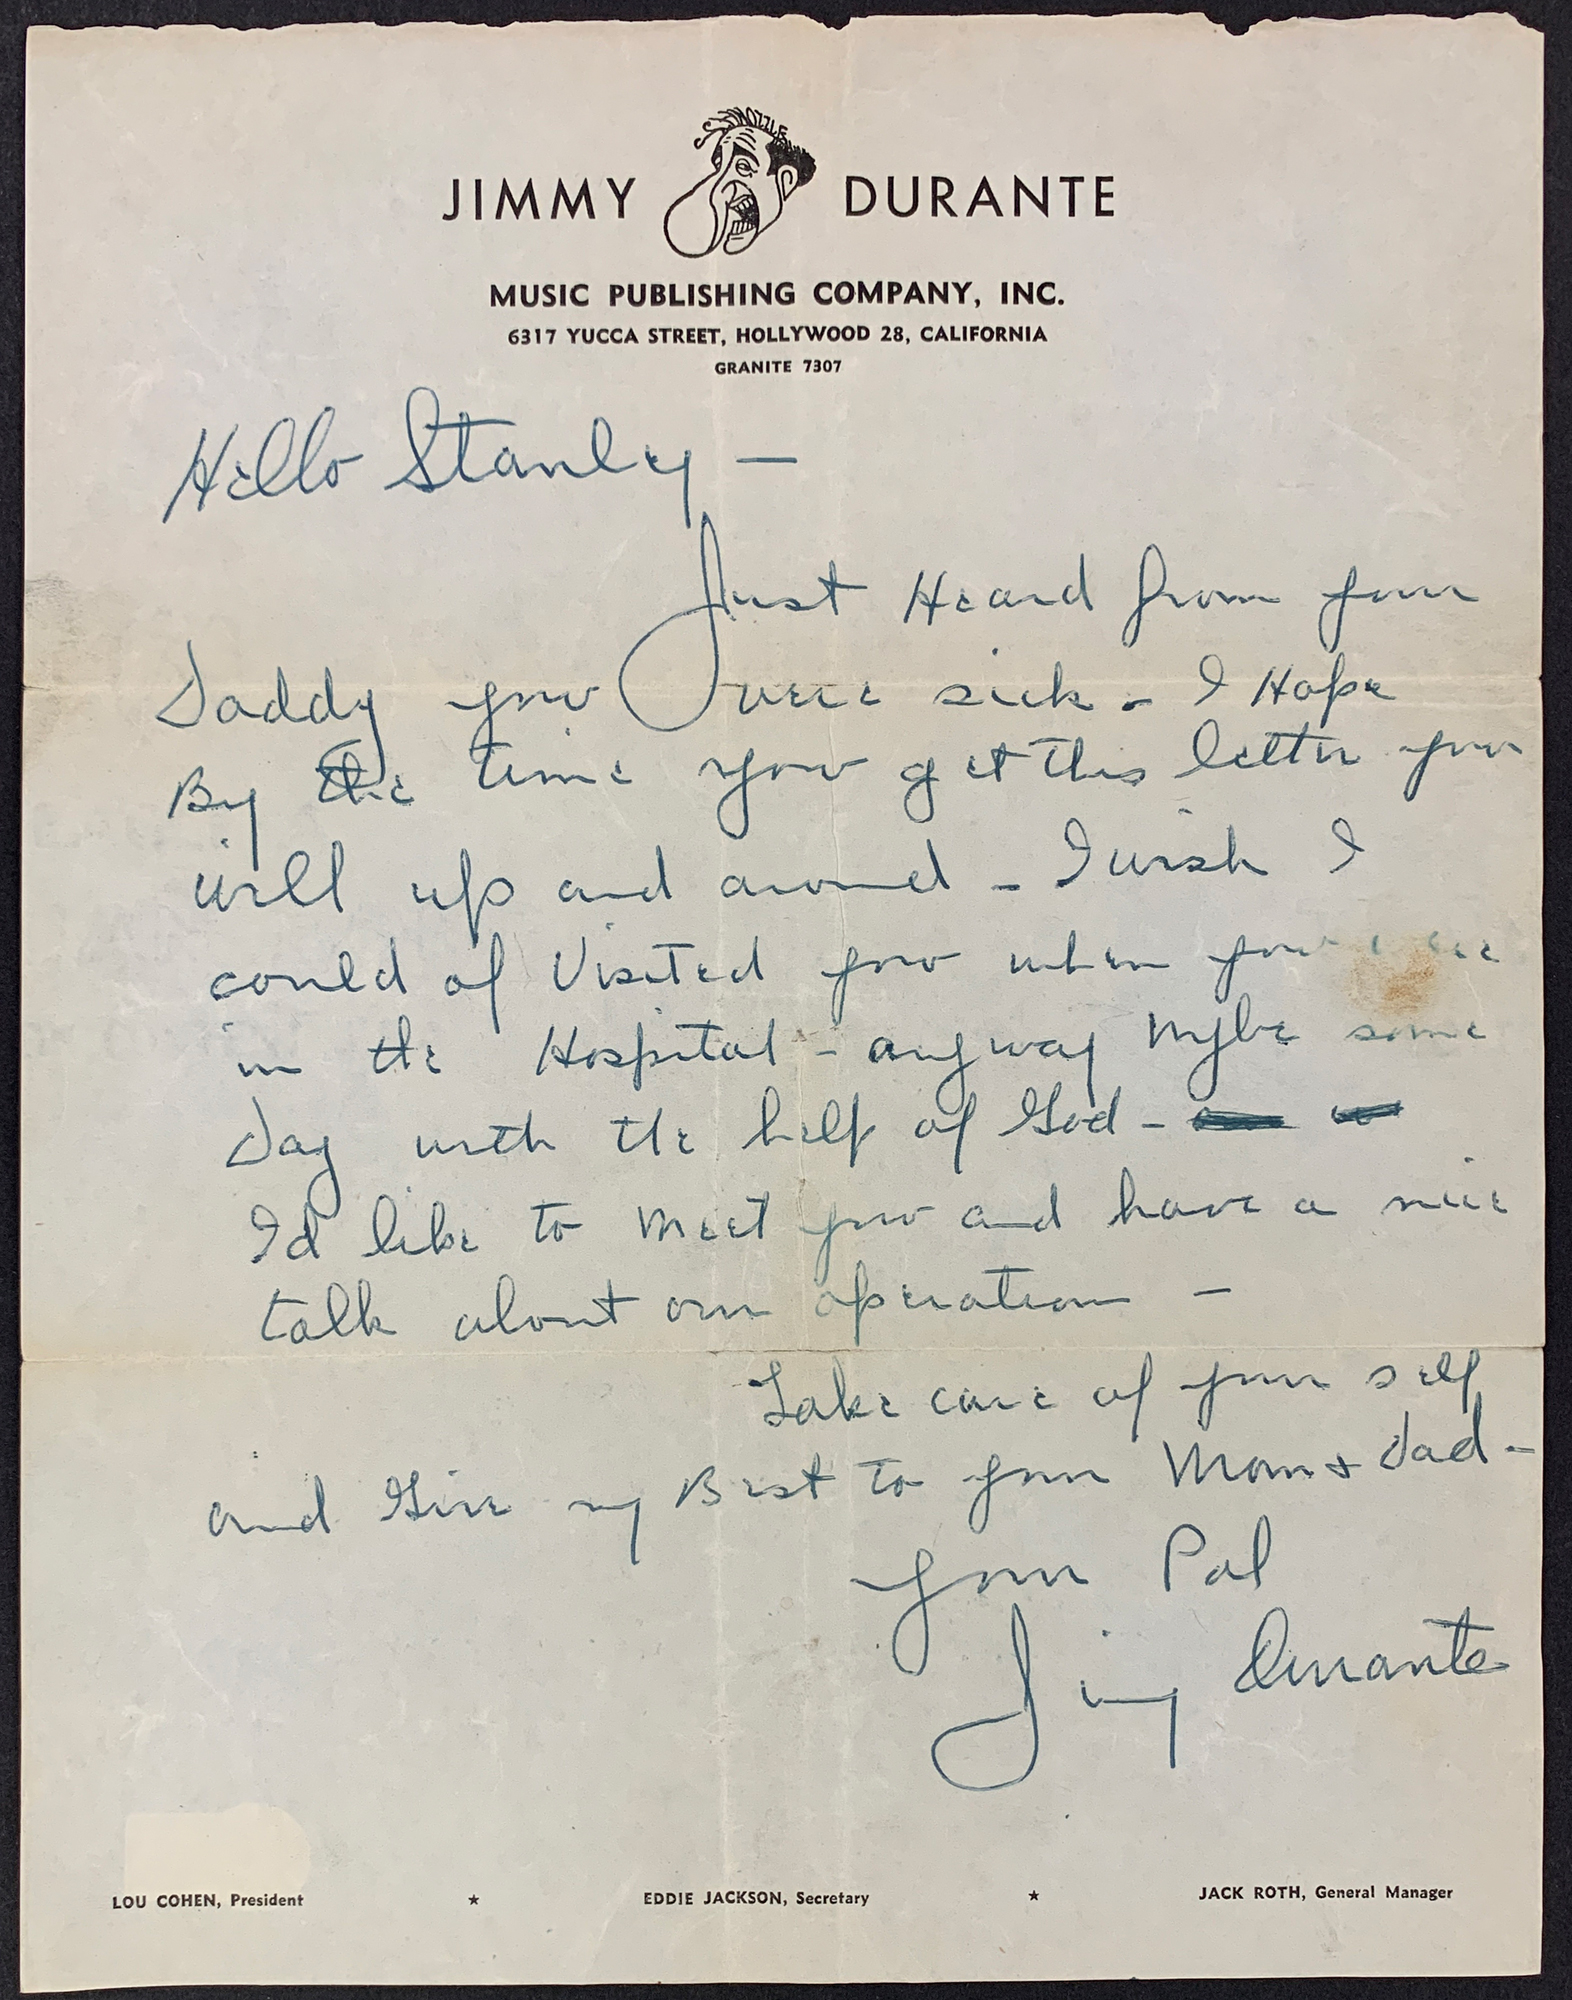 SCHNOZZLE
JIMMY DURANTE
MUSIC PUBLISHING COMPANY, INC.
6317 YUCCA STREET, HOLLYWOOD 28, CALIFORNIA
GRANITE 7307
Hello Stanley —
Just Heard from your
Daddy you were sick - I Hope
By the time you get this letter you
will up and around - I wish I
could of Visited you when you were
in the Hospital - anyway Mybe some
Day with the help of God -
I'd like to Meet you and have a nice
talk about our operation -
Take care of your self
and Give my Best to your Mom + Dad -
Your Pal
Jimmy Durante
LOU COHEN, President ★ EDDIE JACKSON, Secretary ★ JACK ROTH, General Manager